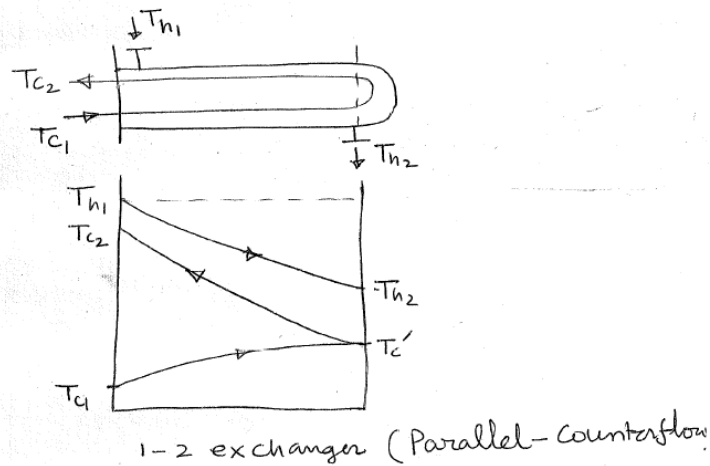 Th1
Tc2
Tc1
Th2
Th1
Tc2
Th2
Tc'
Tc1
1-2 exchanger (Parallel-Counterflow